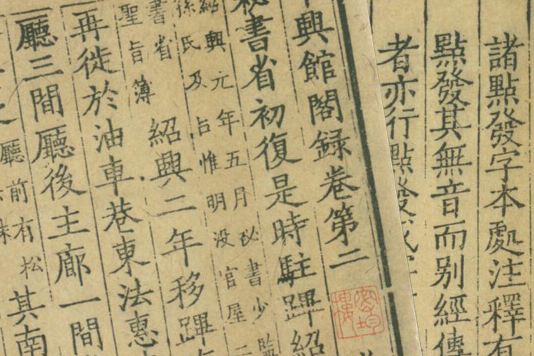 諸點發字本處注釋有
點發其無音而别經傳
者亦行點發或
中興館閣録卷第二
秘書省初復是時駐蹕紹
紹興元年五月秘書少監
孫氏及占惟明没官屋二
書省
聖旨簿
紹興二年移蹕
再徙於油車巷東法惠
廳三間廳後主廊一間
廳前有松
其南